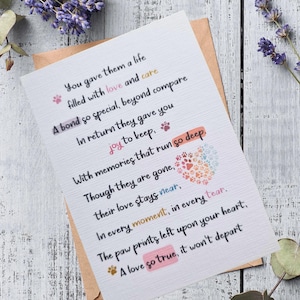 You gave them a life
filled with love and care
A bond so special, beyond compare
In return they gave you
joy to keep,
With memories that run so deep
Though they are gone,
their love stays near,
In every moment, in every tear.
The paw prints left upon your heart,
A love so true, it won't depart